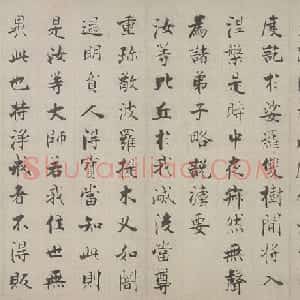 度訖於娑羅雙樹間將入
涅槃是時中夜寂然無聲
為諸弟子略說法要
汝等比丘於我滅後當尊
重珍敬波羅提木叉如闇
遇明貧人得寶當知此則
是汝等大師若我住世無
異此也持淨戒者不得販